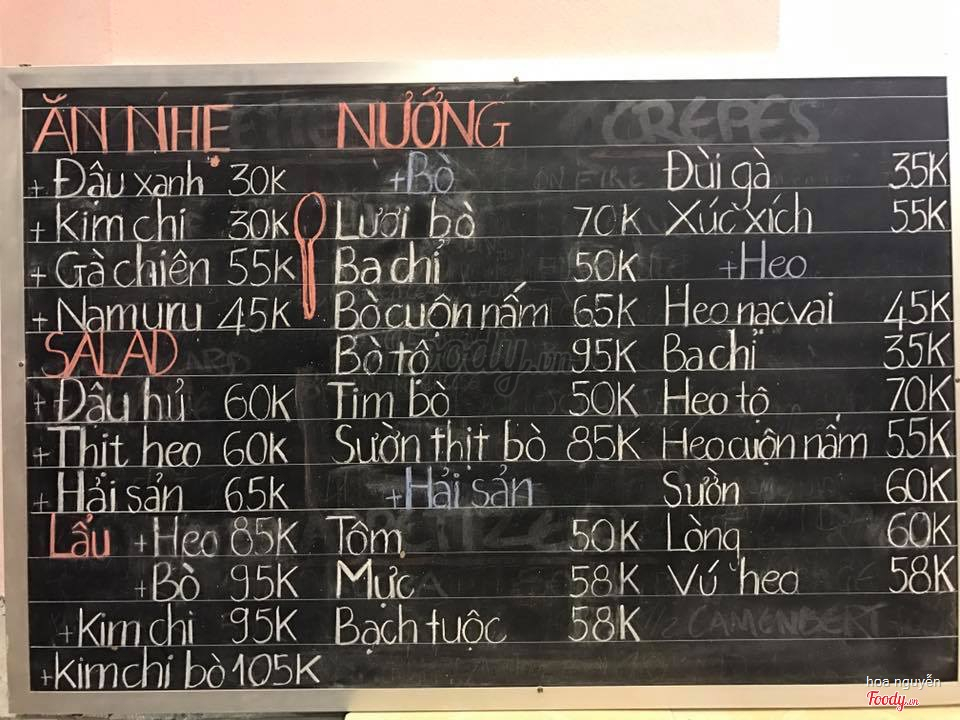 ĂN NHẸ
+ Đậu xanh 30K
+ Kim chi 30K
+ Gà chiên 55K
+ Namuru 45K
SALAD
+ Đậu hủ 60K
+ Thịt heo 60K
+ Hải sản 65K
Lẩu +Heo 85K
+Bò 95K
+Kim chi 95K
+Kimchi bò 105K
NƯỚNG
+Bò
Lưỡi bò 70K
Ba chỉ 50K
Bò cuộn nấm 65K
Bò tộ 95K
Tim bò 50K
Sườn thịt bò 85K
+Hải sản
Tôm 50K
Mực 58K
Bạch tuộc 58K
CREPES
Đùi gà 35K
Xúc xích 55K
+Heo
Heo nạc vai 45K
Ba chỉ 35K
Heo tộ 70K
Heo cuộn nấm 55K
Sườn 60K
Lòng 60K
Vú heo 58K
CAMEMBERT
hoa nguyễn
Foody.vn